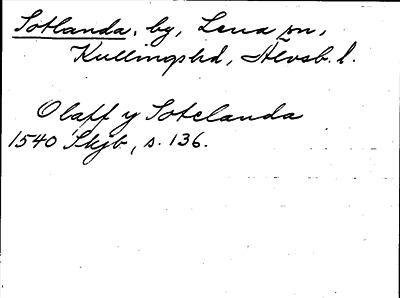 Sotlanda, by, Lena sn,
Kullingshd, Älvsb. l.
Olaff y Sotelanda
1540 Skjb, s. 136.